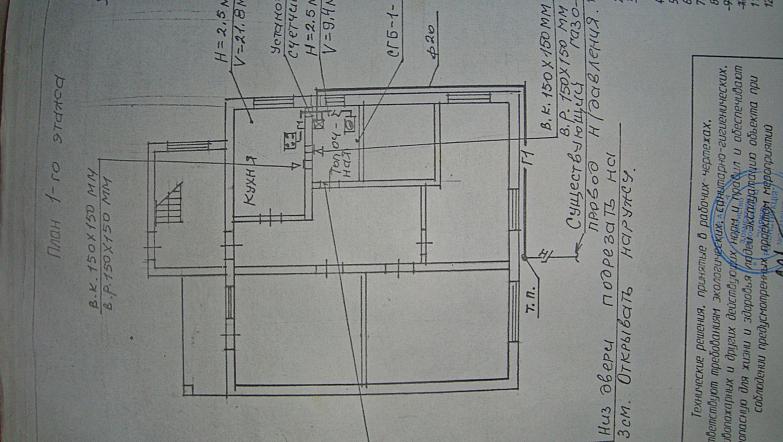 План 1-го этажа
В.К. 150х150 мм
В.Р. 150х150 мм
Н=2,5
V=21.8
счетчи
Н=2.5
V=9.4
СГБ-1-
Ф20
КУХНЯ
Топ
ная
04-
В.К. 150х150 мм
В.Р. 150х150 мм
Существующий газо-
провод н/давления.
Г1
Т.П.
Низ двери подрезать на
3см. Открывать наружу.
Технические решения, принятые в рабочих чертежах,
ветствуют требованиям экологических, санитарно-гигиенических,
вопожарных и других действующих норм и правил и обеспечивают
опасную для жизни и здоровья людей эксплуатацию объекта при
соблюдении предусмотренных проектом мероприятий